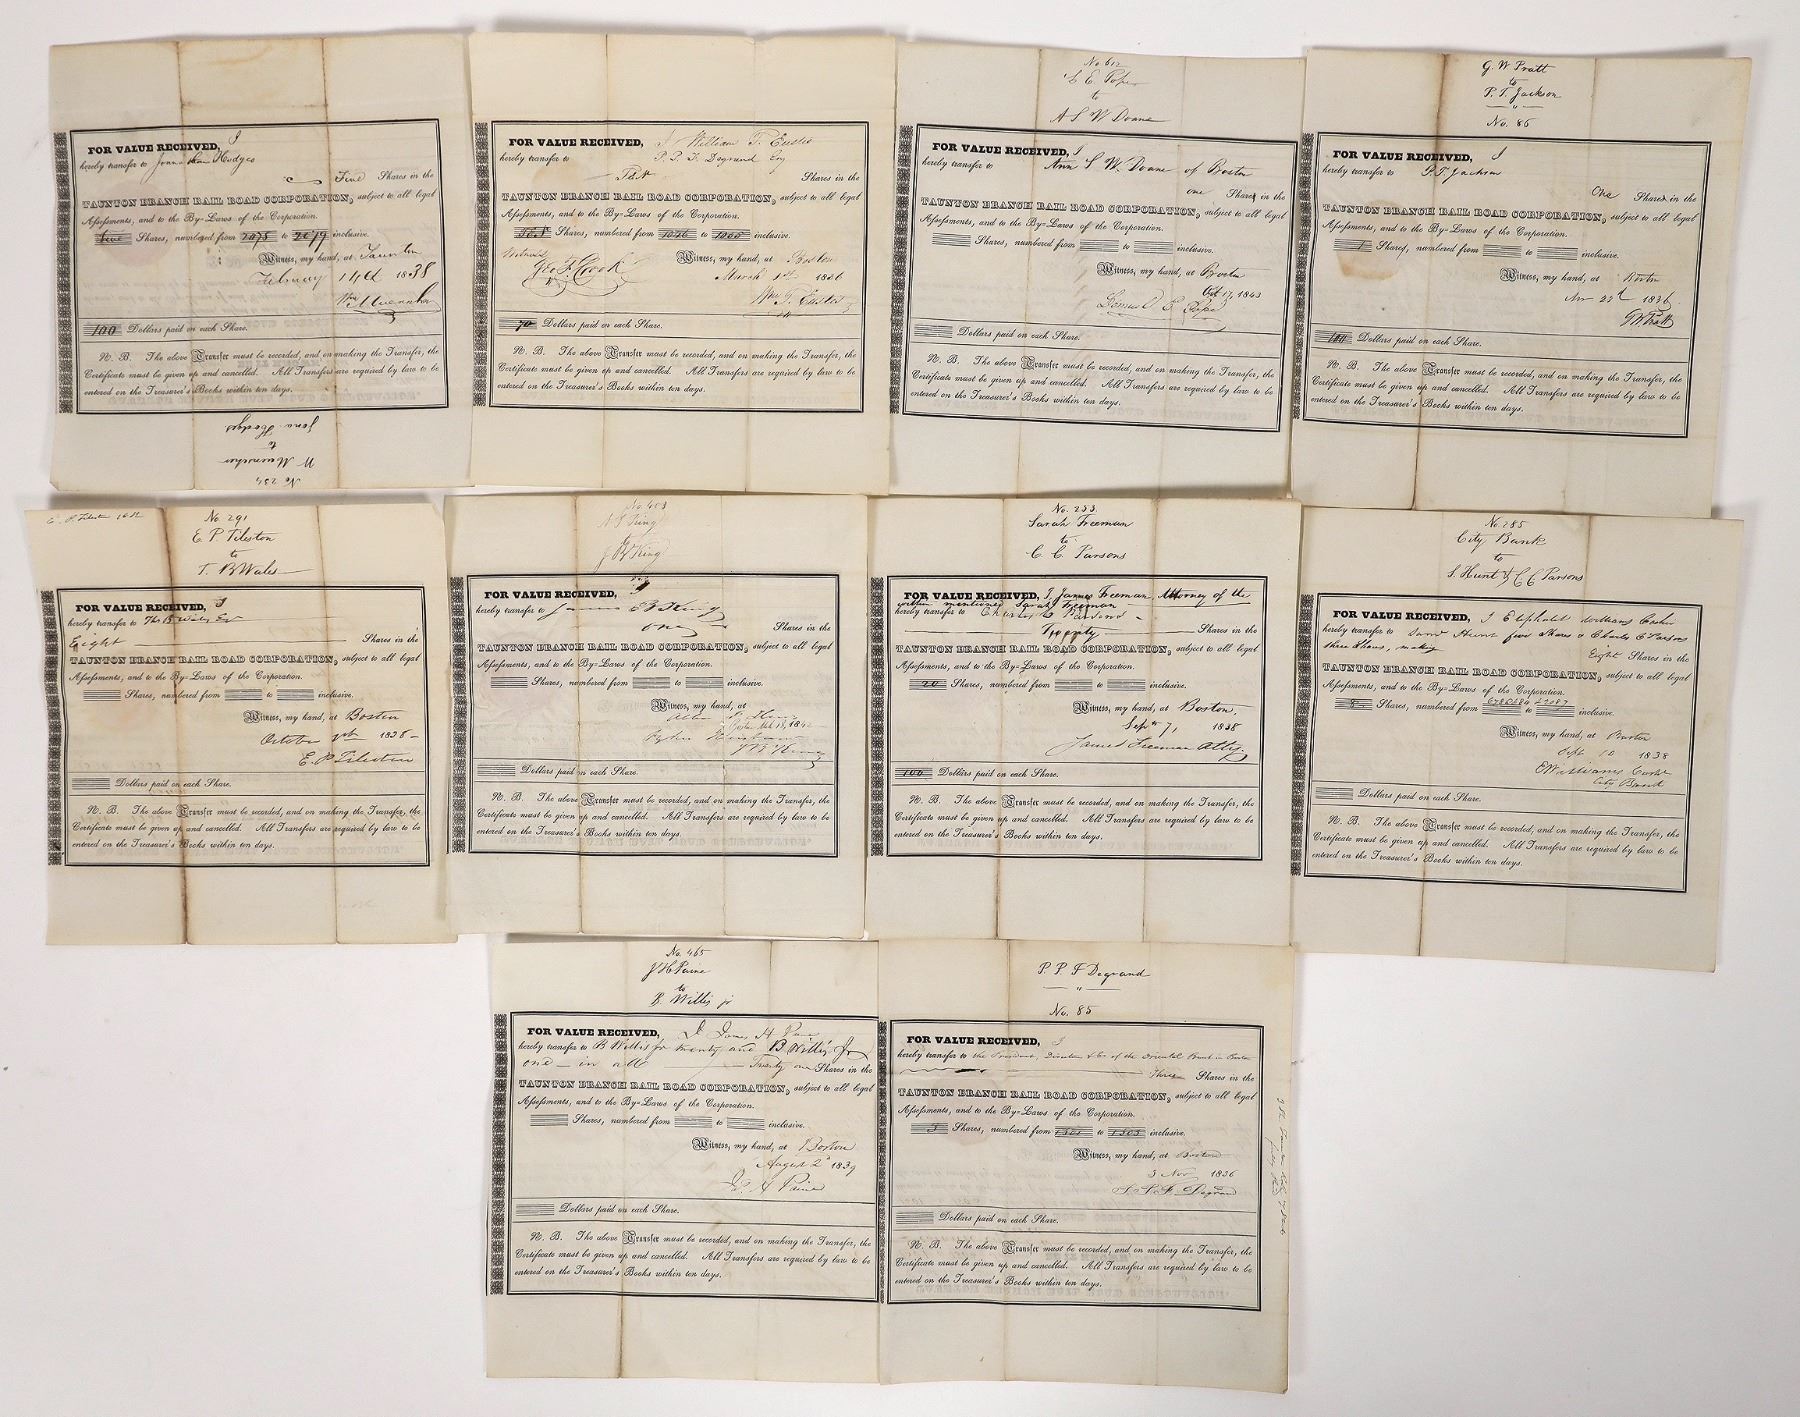 FOR VALUE RECEIVED, I
hereby transfer to Jonathan Hodges
Five Shares in the
TAUNTON BRANCH RAIL ROAD CORPORATION, subject to all legal
Assessments, and to the By-Laws of the Corporation.
five Shares, numbered from 2075 to 2079 inclusive.
Witness, my hand, at Taunton
February 14th 1838
Wm Muenscher
100 Dollars paid on each Share.
N. B. The above Transfer must be recorded, and on making the Transfer, the
Certificate must be given up and cancelled. All Transfers are required by law to be
entered on the Treasurer's Books within ten days.
No 234
W Muenscher
to
Jona Hodges
FOR VALUE RECEIVED, I William T. Eustis
hereby transfer to P. P. F. Degrand Esq
Shares in the
TAUNTON BRANCH RAIL ROAD CORPORATION, subject to all legal
Assessments, and to the By-Laws of the Corporation.
Shares, numbered from to inclusive.
Witness, my hand, at Boston
Geo F. Cook
March 1st 1836
Wm T. Eustis
70 Dollars paid on each Share.
N. B. The above Transfer must be recorded, and on making the Transfer, the
Certificate must be given up and cancelled. All Transfers are required by law to be
entered on the Treasurer's Books within ten days.
No 612
E Pope
to
A S W Doane
FOR VALUE RECEIVED, I
hereby transfer to Ann S. W. Doane of Boston
one Shares in the
TAUNTON BRANCH RAIL ROAD CORPORATION, subject to all legal
Assessments, and to the By-Laws of the Corporation.
Shares, numbered from to inclusive.
Witness, my hand, at Boston
Oct 17, 1843
E Pope
Dollars paid on each Share.
N. B. The above Transfer must be recorded, and on making the Transfer, the
Certificate must be given up and cancelled. All Transfers are required by law to be
entered on the Treasurer's Books within ten days.
G. W. Pratt
to
P. T. Jackson
"
No. 86
FOR VALUE RECEIVED, I
hereby transfer to P. T. Jackson
One Shares in the
TAUNTON BRANCH RAIL ROAD CORPORATION, subject to all legal
Assessments, and to the By-Laws of the Corporation.
1 Shares, numbered from to inclusive.
Witness, my hand, at Boston
Nov 22d 1836
G W Pratt
100 Dollars paid on each Share.
N. B. The above Transfer must be recorded, and on making the Transfer, the
Certificate must be given up and cancelled. All Transfers are required by law to be
entered on the Treasurer's Books within ten days.
No. 291
E P Tileston
to
T. B Wales
FOR VALUE RECEIVED, I
hereby transfer to Thos B Wales Esq
Eight Shares in the
TAUNTON BRANCH RAIL ROAD CORPORATION, subject to all legal
Assessments, and to the By-Laws of the Corporation.
Shares, numbered from to inclusive.
Witness, my hand, at Boston
October 1838
E. P. Tileston
Dollars paid on each Share.
N. B. The above Transfer must be recorded, and on making the Transfer, the
Certificate must be given up and cancelled. All Transfers are required by law to be
entered on the Treasurer's Books within ten days.
King
J B King
FOR VALUE RECEIVED, I
hereby transfer to James B King
one
Shares in the
TAUNTON BRANCH RAIL ROAD CORPORATION, subject to all legal
Assessments, and to the By-Laws of the Corporation.
Shares, numbered from to inclusive.
Witness, my hand, at
Dollars paid on each Share.
N. B. The above Transfer must be recorded, and on making the Transfer, the
Certificate must be given up and cancelled. All Transfers are required by law to be
entered on the Treasurer's Books within ten days.
No. 253.
Sarah Freeman
to
C. C. Parsons
FOR VALUE RECEIVED, I, James Freeman, Attorney of the
within mentioned Sarah Freeman
hereby transfer to Charles C Parsons
Twenty Shares in the
TAUNTON BRANCH RAIL ROAD CORPORATION, subject to all legal
Assessments, and to the By-Laws of the Corporation.
20 Shares, numbered from to inclusive.
Witness, my hand, at Boston,
Septr 7, 1838
James Freeman Atty
100 Dollars paid on each Share.
N. B. The above Transfer must be recorded, and on making the Transfer, the
Certificate must be given up and cancelled. All Transfers are required by law to be
entered on the Treasurer's Books within ten days.
No. 285
City Bank
to
S. Hunt & C C Parsons
FOR VALUE RECEIVED, I Eliphalet Williams Cashr
hereby transfer to Saml Hunt five shares & Charles C Parsons
three Shares, making Eight Shares in the
TAUNTON BRANCH RAIL ROAD CORPORATION, subject to all legal
Assessments, and to the By-Laws of the Corporation.
8 Shares, numbered from to inclusive.
Witness, my hand, at Boston
Sept 10 1838
E Williams Cashr
City Bank
Dollars paid on each Share.
N. B. The above Transfer must be recorded, and on making the Transfer, the
Certificate must be given up and cancelled. All Transfers are required by law to be
entered on the Treasurer's Books within ten days.
No. 465
J H Paine
to
B. Willis jr
FOR VALUE RECEIVED, I James H Paine
hereby transfer to B Willis Jr twenty and B Willis Jr
one - in all Twenty one Shares in the
TAUNTON BRANCH RAIL ROAD CORPORATION, subject to all legal
Assessments, and to the By-Laws of the Corporation.
Shares, numbered from to inclusive.
Witness, my hand, at Boston
August 2d 1839
Js H Paine
Dollars paid on each Share.
N. B. The above Transfer must be recorded, and on making the Transfer, the
Certificate must be given up and cancelled. All Transfers are required by law to be
entered on the Treasurer's Books within ten days.
P. P. F Degrand
"
No. 85
FOR VALUE RECEIVED, I
hereby transfer to the President, Directors & Co of the Oriental Bank in Boston
three Shares in the
TAUNTON BRANCH RAIL ROAD CORPORATION, subject to all legal
Assessments, and to the By-Laws of the Corporation.
3 Shares, numbered from 1301 to 1303 inclusive.
Witness, my hand, at Boston
3 Nov 1836
P. P. F. Degrand
Dollars paid on each Share.
N. B. The above Transfer must be recorded, and on making the Transfer, the
Certificate must be given up and cancelled. All Transfers are required by law to be
entered on the Treasurer's Books within ten days.